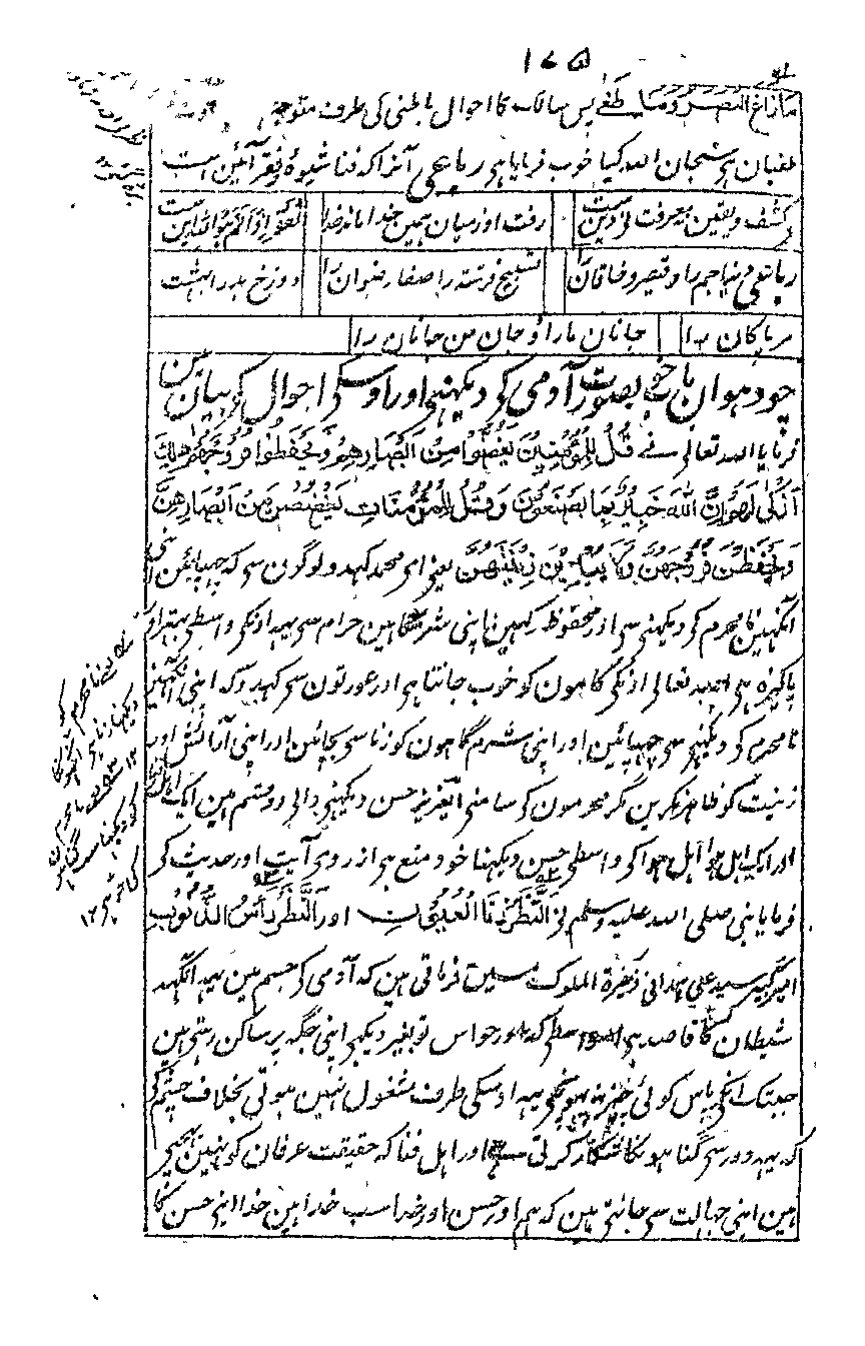 ۱۷۵
مَا زَاغَ الْبَصَرُ وَمَا طَغٰی پس سالک کا احوال باطنی کی طرف متوجہ
طغیان ہے سبحان اللہ کیا خوب فرمایا ہے رباعی آنرا کہ فنا شیوۂ و فقر آئین است
نہ کشف و یقین نہ معرفت نہ دین است | رفت او ز میان ہمین خدا ماند خدا | الفقر اذا تم ہو اللہ این است
رباعی دنیا جم را و قیصر و خاقان را | تسبیح فرشتہ را صفا رضوان را | دوزخ بد را بہشت
مر پاکان را | جانان ما را و جان من جانان را
چودھوان باب خوبصورت آدمی کے دیکھنے اور اوسکے احوال کے بیان مین
فرمایا اللہ تعالی نے قُلْ لِلْمُؤْمِنِيْنَ يَغُضُّوْا مِنْ اَبْصَارِهِمْ وَيَحْفَظُوْا فُرُوْجَهُمْ ذٰلِكَ
اَزْكٰى لَهُمْ اِنَّ اللّٰهَ خَبِيْرٌ بِمَا يَصْنَعُوْنَ وَقُلْ لِلْمُؤْمِنَاتِ يَغْضُضْنَ مِنْ اَبْصَارِهِنَّ
وَيَحْفَظْنَ فُرُوْجَهُنَّ وَلَا يُبْدِيْنَ زِيْنَتَهُنَّ یعنی ای محمد کہدو لوگون سے کہ چھپائین اپنی
آنکہین نامحرم کے دیکھنے سے اور محفوظ رکہین اپنی شرمگاہین حرام سے یہہ اونکی واسطے بہتر اور
پاکیزہ ہے اللہ تعالی اونکے کامون کو خوب جانتا ہے اور عورتون سے کہدو کہ اپنی آنکہین
نامحرم کے دیکھنے سے چھپائین اور اپنی شرم گاہون کو زنا سے بچائین اور اپنی آرائش اور
زینت کو ظاہر نکرین مگر محرمون کے سامنے ای عزیز حسن دیکھنے والے دو قسم ہین ایک اہل
اور ایک اہل ہوا اہل ہوا کے واسطے حسن دیکھنا خود منع ہے از روے آیت اور حدیث کے
فرمایا نبی صلی اللہ علیہ وسلم نے اَلنَّظَرُ زِنَا الْعُيُوْنِ اور اَلنَّظَرُ رَأْسُ الذُّنُوْبِ
امیر کبیر سید علی ہمدانی ذخیرۃ الملوک مین فرماتے ہین کہ آدمی کے جسم مین یہہ آنکہہ
شیطان کا قاصد ہے اسواسطے کہ اور حواس تو بغیر دیکھے اپنی جگہ پر ساکن رہتے ہین
جبتک انکے پاس کوئی چیز نہ پہونچے یہہ اوسکی طرف مشغول نہین ہوتے بخلاف چشم کے
کہ یہہ دور سے گناہونکا شکار کرتی ہے اور اہل فنا کہ حقیقت عرفان کو نہین پہنچے
ہین اپنی جہالت سے جانتے ہین کہ ہم اور حسن اور خدا سب خدا ہین خدا اپنے حسن کا
نامحرم کو
دیکھنا زنا ہے آنکہہ
۱۲
نامحرم
کو دیکھنا سر ہے گناہون
کا ۱۲